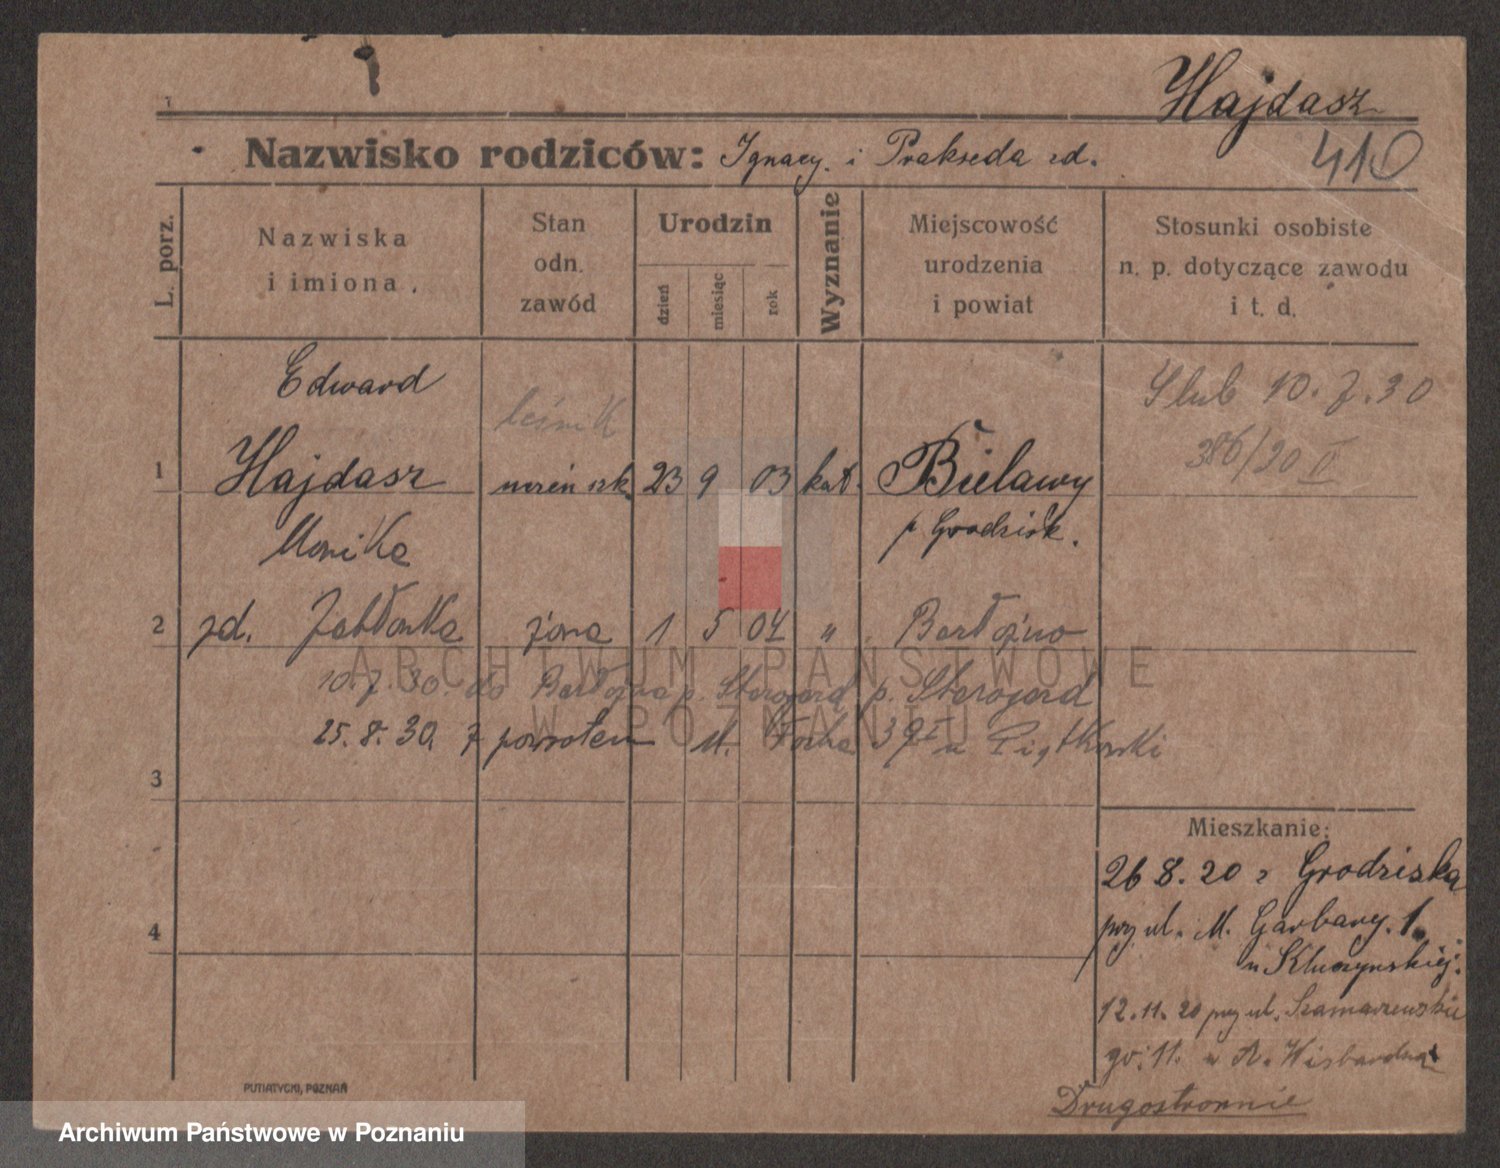 Hajdasz
410
Nazwisko rodziców: Ignacy i Prakseda zd.
L. porz.
Nazwiska
i imiona.
Stan
odn.
zawód
Urodzin
dzień
miesiąc
rok
Wyznanie
Miejscowość
urodzenia
i powiat
Stosunki osobiste
n. p. dotyczące zawodu
i t. d.
Edward
leśnik
Ślub 10.7.30
386/30 II
1 Hajdasz uczeń szk. 23 9 03 kat. Bielawy
p Grodzisk.
Monika
2 zd. Jabłonka żona 1 5 04 „ Bartożno
10.7.30. do p. Starogard p. Starogard
25.8.30 z powrotem M. Focha 39 I u Piątkowski
3
4
Mieszkanie:
26 8.20 z Grodziska
przy ul. M. Garbary. 1.
u Kluczynskiej.
12.11.20 przy ul. Szamarzewskie
go. 11. u A.
Drugostronnie
PUTIATYCKI, POZNAŃ
ARCHIWUM PAŃSTWOWE
W POZNANIU
Archiwum Państwowe w Poznaniu